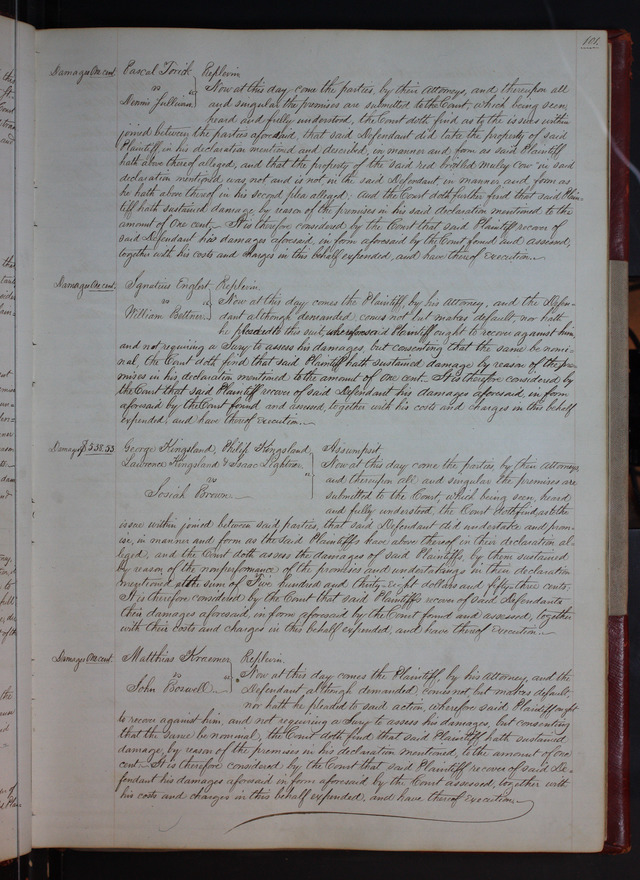 101.
Damages One cent. Pascal Torick } Replevin
vs " Now at this day come the parties, by their Attorneys, and thereupon all
Dennis Sullivan and singular the premises are submitted to the Court, which being seen,
heard and fully understood, the Court doth find as to the issue within
joined between the parties aforesaid, that said Defendant did take the property of said
Plaintiff, in his declaration mentioned and described, in manner and form as said Plaintiff
hath above thereof alleged, and that the property of the said red brindled muley cow in said
declaration mentioned was not and is not in the said Defendant, in manner and form as
he hath above thereof in his second plea alleged. And the Court doth further find that said Plain-
tiff hath sustained damage by reason of the premises in his said declaration mentioned to the
amount of One cent. It is therefore considered by the Court that said Plaintiff recover of
said Defendant his damages aforesaid, in form aforesaid by the Court found and assessed,
together with his costs and charges in this behalf expended, and have thereof execution.
Damages One cent. Ignatius Englert } Replevin.
vs " Now at this day comes the Plaintiff, by his Attorney, and the Defen-
William Bettner dant although demanded, comes not but makes default, nor hath
he pleaded to the suit, wherefore said Plaintiff ought to recover against him,
and not requiring a Jury to assess his damages, but consenting that the same be nomi-
nal, the Court doth find that said Plaintiff hath sustained damage by reason of the pre-
mises in his declaration mentioned to the amount of one cent. It is therefore considered by
the Court that said Plaintiff recover of said Defendant his damages aforesaid, in form
aforesaid by the Court found and assessed, together with his costs and charges in this behalf
expended, and have thereof execution.
Damages $538.53 George Kingsland, Philip Kingsland, } Assumpsit
Lawrence Kingsland & Isaac Lightner " Now at this day come the parties by their Attorneys,
vs and thereupon all and singular the premises are
Josiah Brown. submitted to the Court, which being seen, heard
and fully understood, the Court doth find as to the
issue within joined between said parties, that said Defendant did undertake and prom-
ise, in manner and form as the said Plaintiffs have above thereof in their declaration al-
leged, and the Court doth assess the damages of said Plaintiffs, by them sustained
by reason of the nonperformance of the promises and undertakings in their declaration
mentioned at the sum of Five hundred and thirty-eight dollars and fifty-three cents.
It is therefore considered by the Court that said Plaintiffs recover of said Defendants
their damages aforesaid, in form aforesaid by the Court found and assessed, together
with their costs and charges in this behalf expended, and have thereof execution.
Damages One cent. Matthias Kraemer } Replevin.
vs " Now at this day comes the Plaintiff, by his Attorney, and the
John Boswell Defendant although demanded, comes not but makes default,
nor hath he pleaded to said action, wherefore said Plaintiff ought
to recover against him, and not requiring a Jury to assess his damages, but consenting
that the same be nominal, the Court doth find that said Plaintiff hath sustained
damage, by reason of the premises in his declaration mentioned, to the amount of One
cent. It is therefore considered by the Court that said Plaintiff recover of said De-
fendant his damages aforesaid in form aforesaid by the Court assessed, together with
his costs and charges in this behalf expended, and have thereof execution.